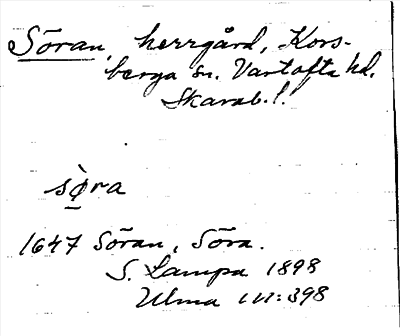 Sōran, herrgård, Kors-
berga sn. Vartofta hd.
Skarab. l.
sø̀ra
1647 Sōran, Sōra.
S. Lampa 1898
Ulma 111:398